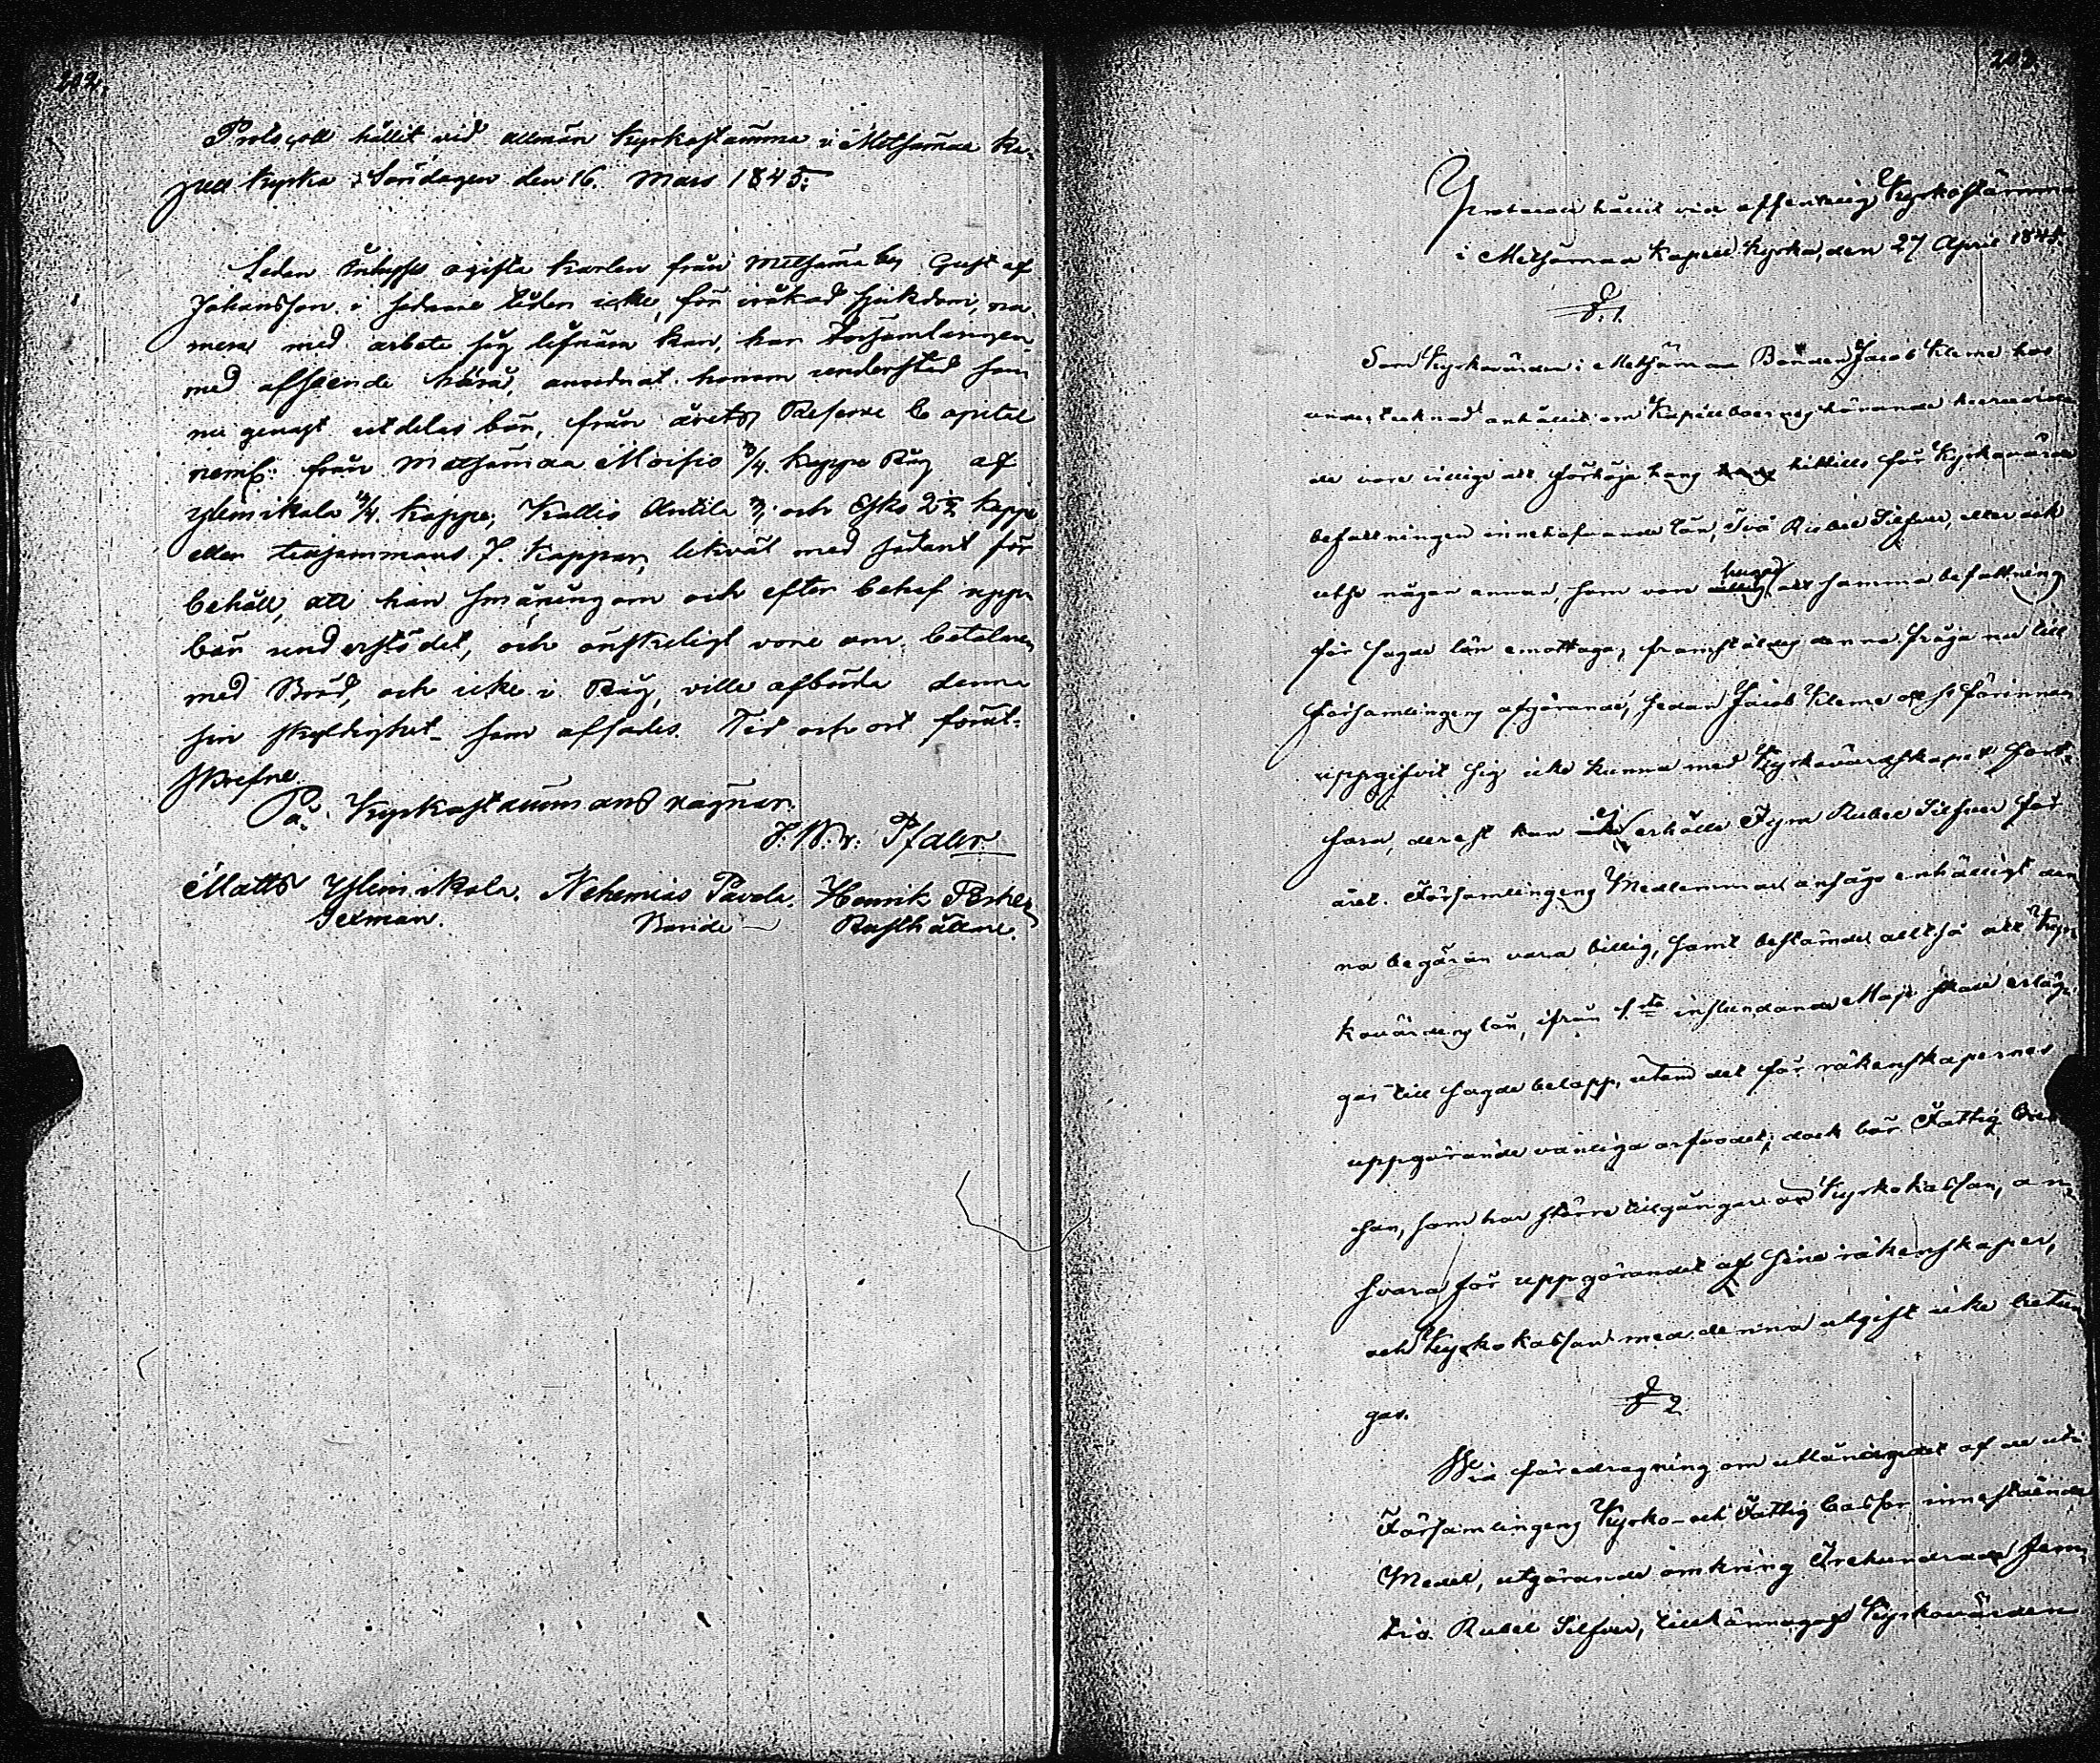 202.
Protocoll hållit vid allmän Kyrkostämma i Metsämaa Ka-
pell kyrka Söndagen den 16. Mars 1845.
Sedan ogifte karlen från Metsämaa by Gustaf
Johansson i sednare tider icke, för iråkad sjukdom, na
mera med arbete sig lifnära kan, har Församlingen
med afseende härå, anordnat honom understöd som
nu genast utdelas bör, från årets Reserve Capital
neml: från Metsämaa Moisio 3/4. kappe Råg af
Yliknikala 3/4. kappe, Kallis Antila 3, och Esko 2 1/2 kappe
eller tillsammans 7. kappar, likväl med sådant för
behåll, att han småningom och efter behof uppe
bär understödet, och önskeligt vore om betalaren
med Bröd, och icke i Råg, ville afbörda denna
sin skyldighet som afsades. Tid och ort förut-
skrefne.
På Kyrkostämmans vägnar.
F. W. v. Pfaler
Matts Nehemias Pavola. Henrik
Sexman. Bonde Rusthållare.
203.
Protocoll hållit vid offentlig Kyrkostämma
i Metsämaa Kapell Kyrka, den 27 April 1845
§. 1.
Som Kyrkovärden i Metsämaa Bonden Jacob Kleme hos
undertecknad anhållit om Kapellboernes hörande huruvida
de vore villige att förhöja hans hittills för Kyrkovärds
befattningen innehafvande lön, Två Rubel Silfver, eller ock
utse någon annan, som vore hugad att samma befattning
för sagde lön emottaga; framställdes denna fråga nu till
Församlingens afgörande, sedan Jacob Kleme ock förinnan
uppgifvit sig icke kunna med Kyrkovärdskapet fort-
fara, derest han ej erhölle Fyra Rubel Silfver för
året. Församlingens Medlemmar ansågo enhälligt den
na begäran vara billig, samt bestämde alltså att Kyr
kovärdens lön, ifrån 1.sta instundande Maji skall erläg-
gas till sagde belopp, utom det för räkenskapernes
uppgörande vanliga arfvodet; dock bör Fattig Cas
san, som har större tillgångar än Kyrkokassan, an
svara för uppgörandet af sine räkenskaper,
och Kyrkokassan med denna utgift icke betun
gas.
§ 2
Vid föredragning om utlånandet af de uti
Församlingens Kyrko- och Fattig Cassor innestående
Medel, utgörande omkring Trehundrade Fem
tio Rubel Silfver, tillkännagaf Kyrkovärden